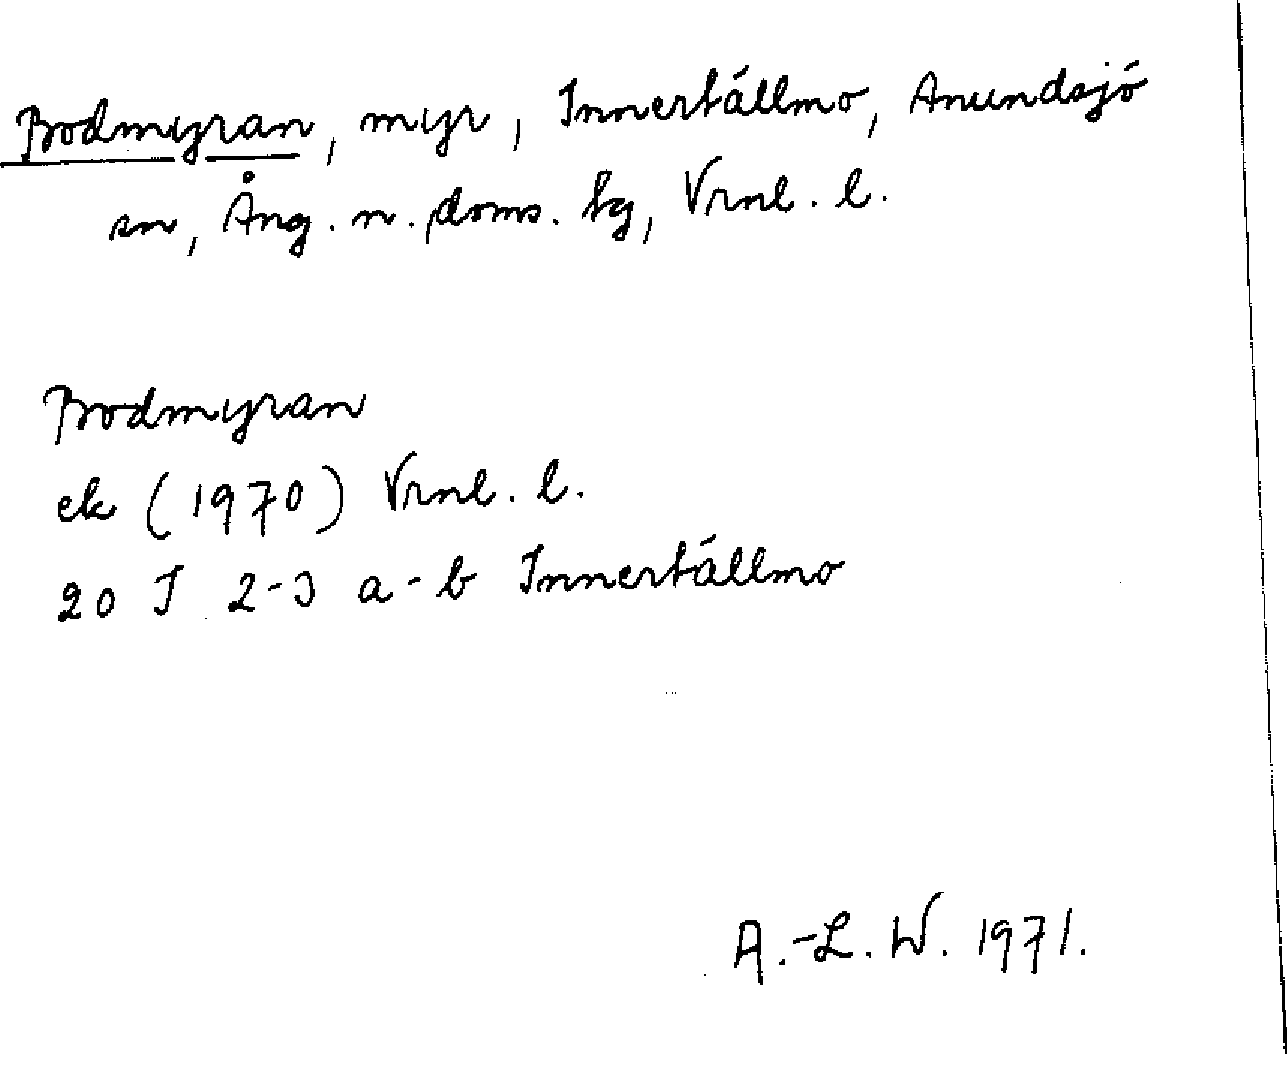 Bodmyran, myr, Innertällmo, Anundsjö
sn, Ång. n. doms. tg, Vrnl. l.
Bodmyran
ek (1970) Vrnl. l.
20 I 2-3 a-b Innertällmo
A.-L. W. 1971.